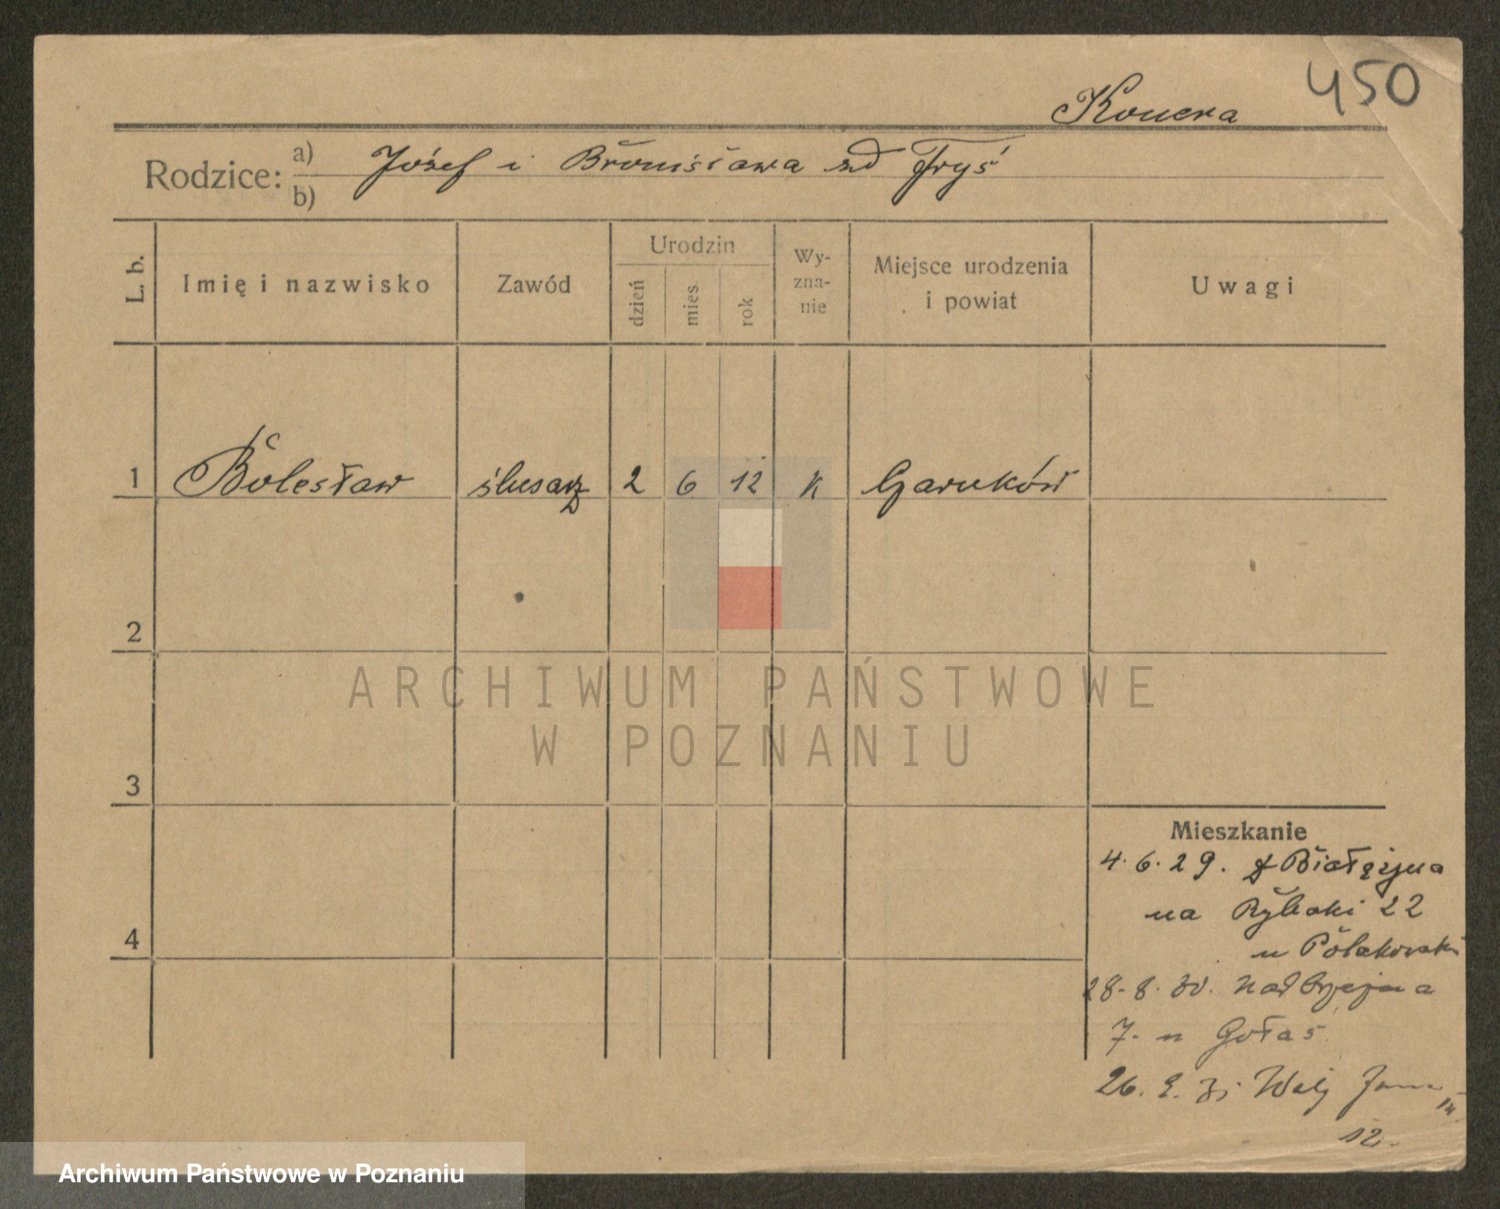 450
Konera
Rodzice: a) Józef i Bronisława zd Fryś
b)
L. b.
Imię i nazwisko
Zawód
Urodzin
dzień
mies.
rok
Wy-
zna-
nie
Miejsce urodzenia
i powiat
Uwagi
1 Bolesław ślusarz 2 6 12 k Garnków
2
ARCHIWUM PAŃSTWOWE
W POZNANIU
3
4
Mieszkanie
4.6.29. z Białężyna
na Rybaki 22
u Polakowski
28.8.30. Nadbrzeżna
7. u Gołaś
26. 31 Wały
12.
Archiwum Państwowe w Poznaniu